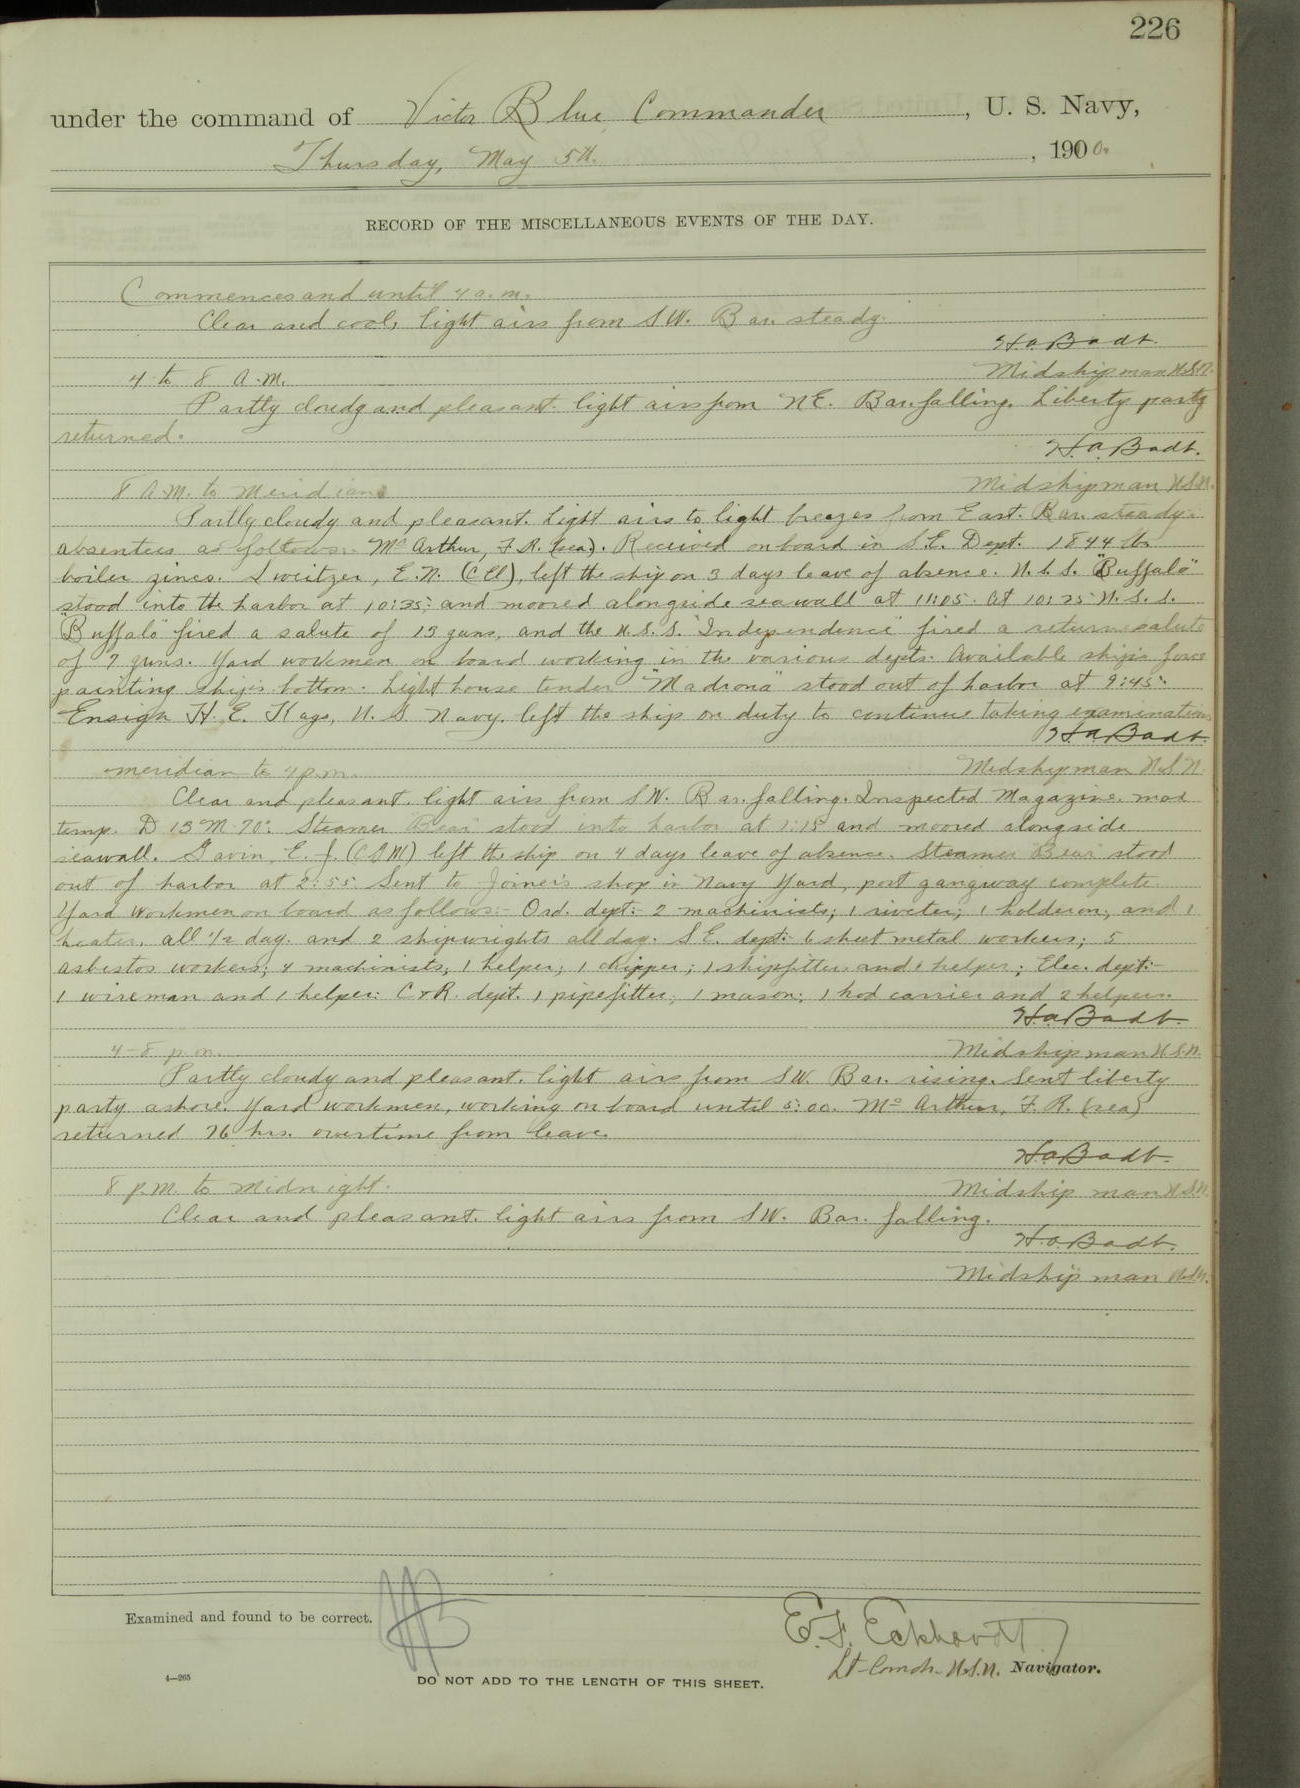 226
under the command of Victor Blue Commander, U. S. Navy,
Thursday, May 5th. , 190
RECORD OF THE MISCELLANEOUS EVENTS OF THE DAY.
Commences and until 4 a.m.
Clear and cool, light airs from SW. Bar. steady.
H.A. Badt.
4 to 8 A.M.
Midshipman U.S.N.
Partly cloudy and pleasant. light airs from NE. Bar. falling. Liberty party
returned.
H.A. Badt.
8 A.M. to Meridian
Midshipman U.S.N.
Partly cloudy and pleasant. Light airs to light breezes from East. Bar. steady.
absentees as follows:- McArthur, F.R. (sea). Received on board in S.E. Dept. 1844 lbs
boiler zincs. E.N. (CEl), left the ship on 3 days leave of absence. U.S.S. "Buffalo"
stood into the harbor at 10:35; and moored alongside seawall at 11:05. At 10:25 U.S.S.
"Buffalo" fired a salute of 13 guns, and the U.S.S. "Independence" fired a return salute
of 7 guns. Yard workmen on board working in the various depts. Available ship's force
painting ship's bottom. Light house tender "Madrona" stood out of harbor at 9:45.
Ensign H. E. U.S. Navy. left the ship on duty to continue taking examination
H.A. Badt.
meridian to 4 p.m.
Midshipman U.S.N.
Clear and pleasant. light airs from SW. Bar. falling. Inspected Magazine. max
temp. D 13 M 70°. Steamer "Bear" stood into harbor at 1:15 and moored alongside
seawall. Gavin, E. J. (CGM) left the ship on 4 days leave of absence. Steamer "Bear" stood
out of harbor at 2:55. Sent to Joiner's shop in Navy Yard, port gangway complete.
Yard workmen on board as follows:- Ord. dept:- 2 machinists; 1 riveter; 1 holderon; and 1
heater, all 1/2 day. and 2 shipwrights all day. S.E. dept:- 6 sheet metal workers; 5
asbestos workers; 4 machinists; 1 helper; 1 chipper; 1 shipfitter and 1 helper; Elec. dept:-
1 wireman and 1 helper: C&R. dept. 1 pipefitter; 1 mason; 1 hod carrier and 2 helpers.
H.A. Badt.
4-8 p.m.
Midshipman U.S.N.
Partly cloudy and pleasant. light airs from SW. Bar. rising. Sent liberty
party ashore. Yard workmen, working on board until 5:00. McArthur, F.R. (sea)
returned 76 hrs. overtime from leave.
H.A. Badt.
8 p.m. to Midnight.
Midshipman U.S.N.
Clear and pleasant. light airs from SW. Bar. falling.
H.A. Badt.
Midshipman U.S.N.
Examined and found to be correct.
E.F. Eckhardt
Lt-Comdr. U.S.N. Navigator.
4—265
DO NOT ADD TO THE LENGTH OF THIS SHEET.